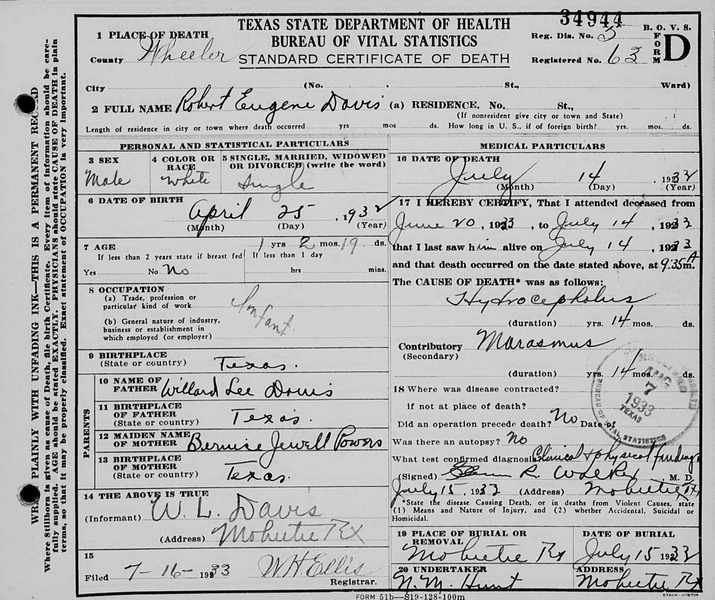 TEXAS STATE DEPARTMENT OF HEALTH
BUREAU OF VITAL STATISTICS
STANDARD CERTIFICATE OF DEATH
34944
B. O. V. S.
FORM D
Reg. Dis. No. 3
Registered No. 63
1 PLACE OF DEATH
County Wheeler
City (No. St., Ward)
2 FULL NAME Robert Eugene Davis (a) RESIDENCE, No. St.,
(If nonresident give city or town and State)
Length of residence in city or town where death occurred yrs mos ds. How long in U. S., if of foreign birth? yrs. mos. ds.
PERSONAL AND STATISTICAL PARTICULARS
3 SEX
Male
4 COLOR OR RACE
White
5 SINGLE, MARRIED, WIDOWED OR DIVORCED (write the word)
Single
6 DATE OF BIRTH
April 25, 1932
(Month) (Day) (Year)
7 AGE
1 yrs 2 mos 19 ds.
If less than 2 years state if breast fed
If less than 1 day
Yes No No
hrs mins.
8 OCCUPATION
(a) Trade, profession or particular kind of work
(b) General nature of industry, business or establishment in which employed (or employer)
Infant
9 BIRTHPLACE
(State or country) Texas.
PARENTS
10 NAME OF FATHER Willard Lee Davis
11 BIRTHPLACE OF FATHER
(State or country) Texas.
12 MAIDEN NAME OF MOTHER Bernise Jewell Powers
13 BIRTHPLACE OF MOTHER
(State or country) Texas.
14 THE ABOVE IS TRUE
(Informant) W. L. Davis
(Address) Mobeetie Tex
15
Filed 7-16-1933 W H Ellis
Registrar.
MEDICAL PARTICULARS
16 DATE OF DEATH
July 14 1933
(Month) (Day) (Year)
17 I HEREBY CERTIFY, That I attended deceased from
June 20, 1933, to July 14, 1933
that I last saw him alive on July 14, 1933
and that death occurred on the date stated above, at 9:35 A m.
The CAUSE OF DEATH* was as follows:
Hydrocephalus
(duration) yrs. 14 mos. ds.
Contributory Marasmus
(Secondary)
(duration) yrs. 14 mos. ds.
18 Where was disease contracted?
if not at place of death?
Did an operation precede death? No Date of
Was there an autopsy? No
What test confirmed diagnosis? Clinical & physical findings
(Signed) M. D.
July 15, 1933 (Address) Mobeetie Tx
*State the disease Causing Death, or in deaths from Violent Causes, state (1) Means and Nature of Injury, and (2) whether Accidental, Suicidal or Homicidal.
19 PLACE OF BURIAL OR REMOVAL
Mobeetie Tx
DATE OF BURIAL
July 15 1933
20 UNDERTAKER
N. M. Hunt
ADDRESS
Mobeetie Tx
FORM 51b—S19-128-100m
AUG 7 1933
TEXAS
VITAL STATISTICS